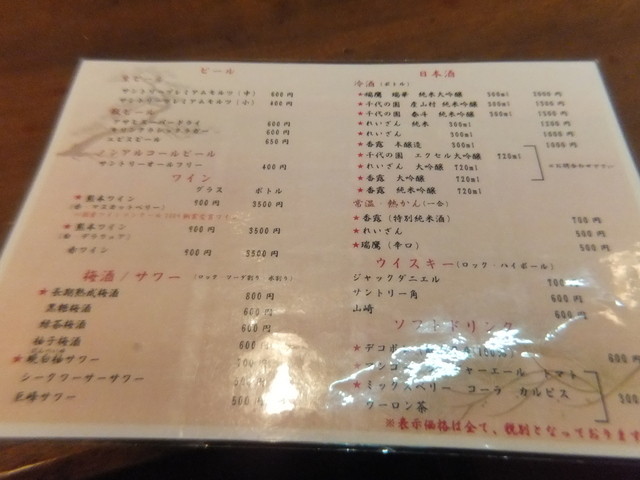 ビール
生ビール
サントリープレミアムモルツ（中） 600円
サントリープレミアムモルツ（小） 400円
瓶ビール
アサヒスーパードライ 600円
キリンクラシックラガー 600円
エビスビール 650円
ノンアルコールビール
サントリーオールフリー 400円
ワイン
グラス ボトル
★熊本ワイン 900円 3500円
（赤 マスカットベリー）
★熊本ワイン 900円 3500円
（白 デラウェア）
赤ワイン 900円 3500円
梅酒 / サワー （ロック ソーダ割り 水割り）
★長期熟成梅酒 600円
黒糖梅酒 600円
緑茶梅酒 600円
柚子梅酒 600
晩白柚サワー
シークワーサーサワー
巨峰サワー 500
日本酒
冷酒（ボトル）
★瑞鷹 瑞華 純米大吟醸 300ml 2000円
★千代の園 産山村 純米吟醸 300ml 1500円
★千代の園 泰斗 純米吟醸 300ml 1500円
★れいざん 純米 300ml 1200円
★れいざん 300ml 1000円
★香露 本醸造 300ml 1000円
★千代の園 エクセル大吟醸 720ml
★れいざん 大吟醸 720ml
★香露 大吟醸 720ml
★香露 純米吟醸 720ml
常温・熱かん（一合）
★香露（特別純米酒） 700円
★れいざん 500円
★瑞鷹（辛口） 500円
ウイスキー（ロック・ハイボール）
ジャックダニエル 700
サントリー角 600円
山崎 600
ソフトドリンク
★デコポン 600円
ジャーエール トマト
★ミックスベリー コーラ カルピス 300
ウーロン茶
※表示価格は全て、税別となっております